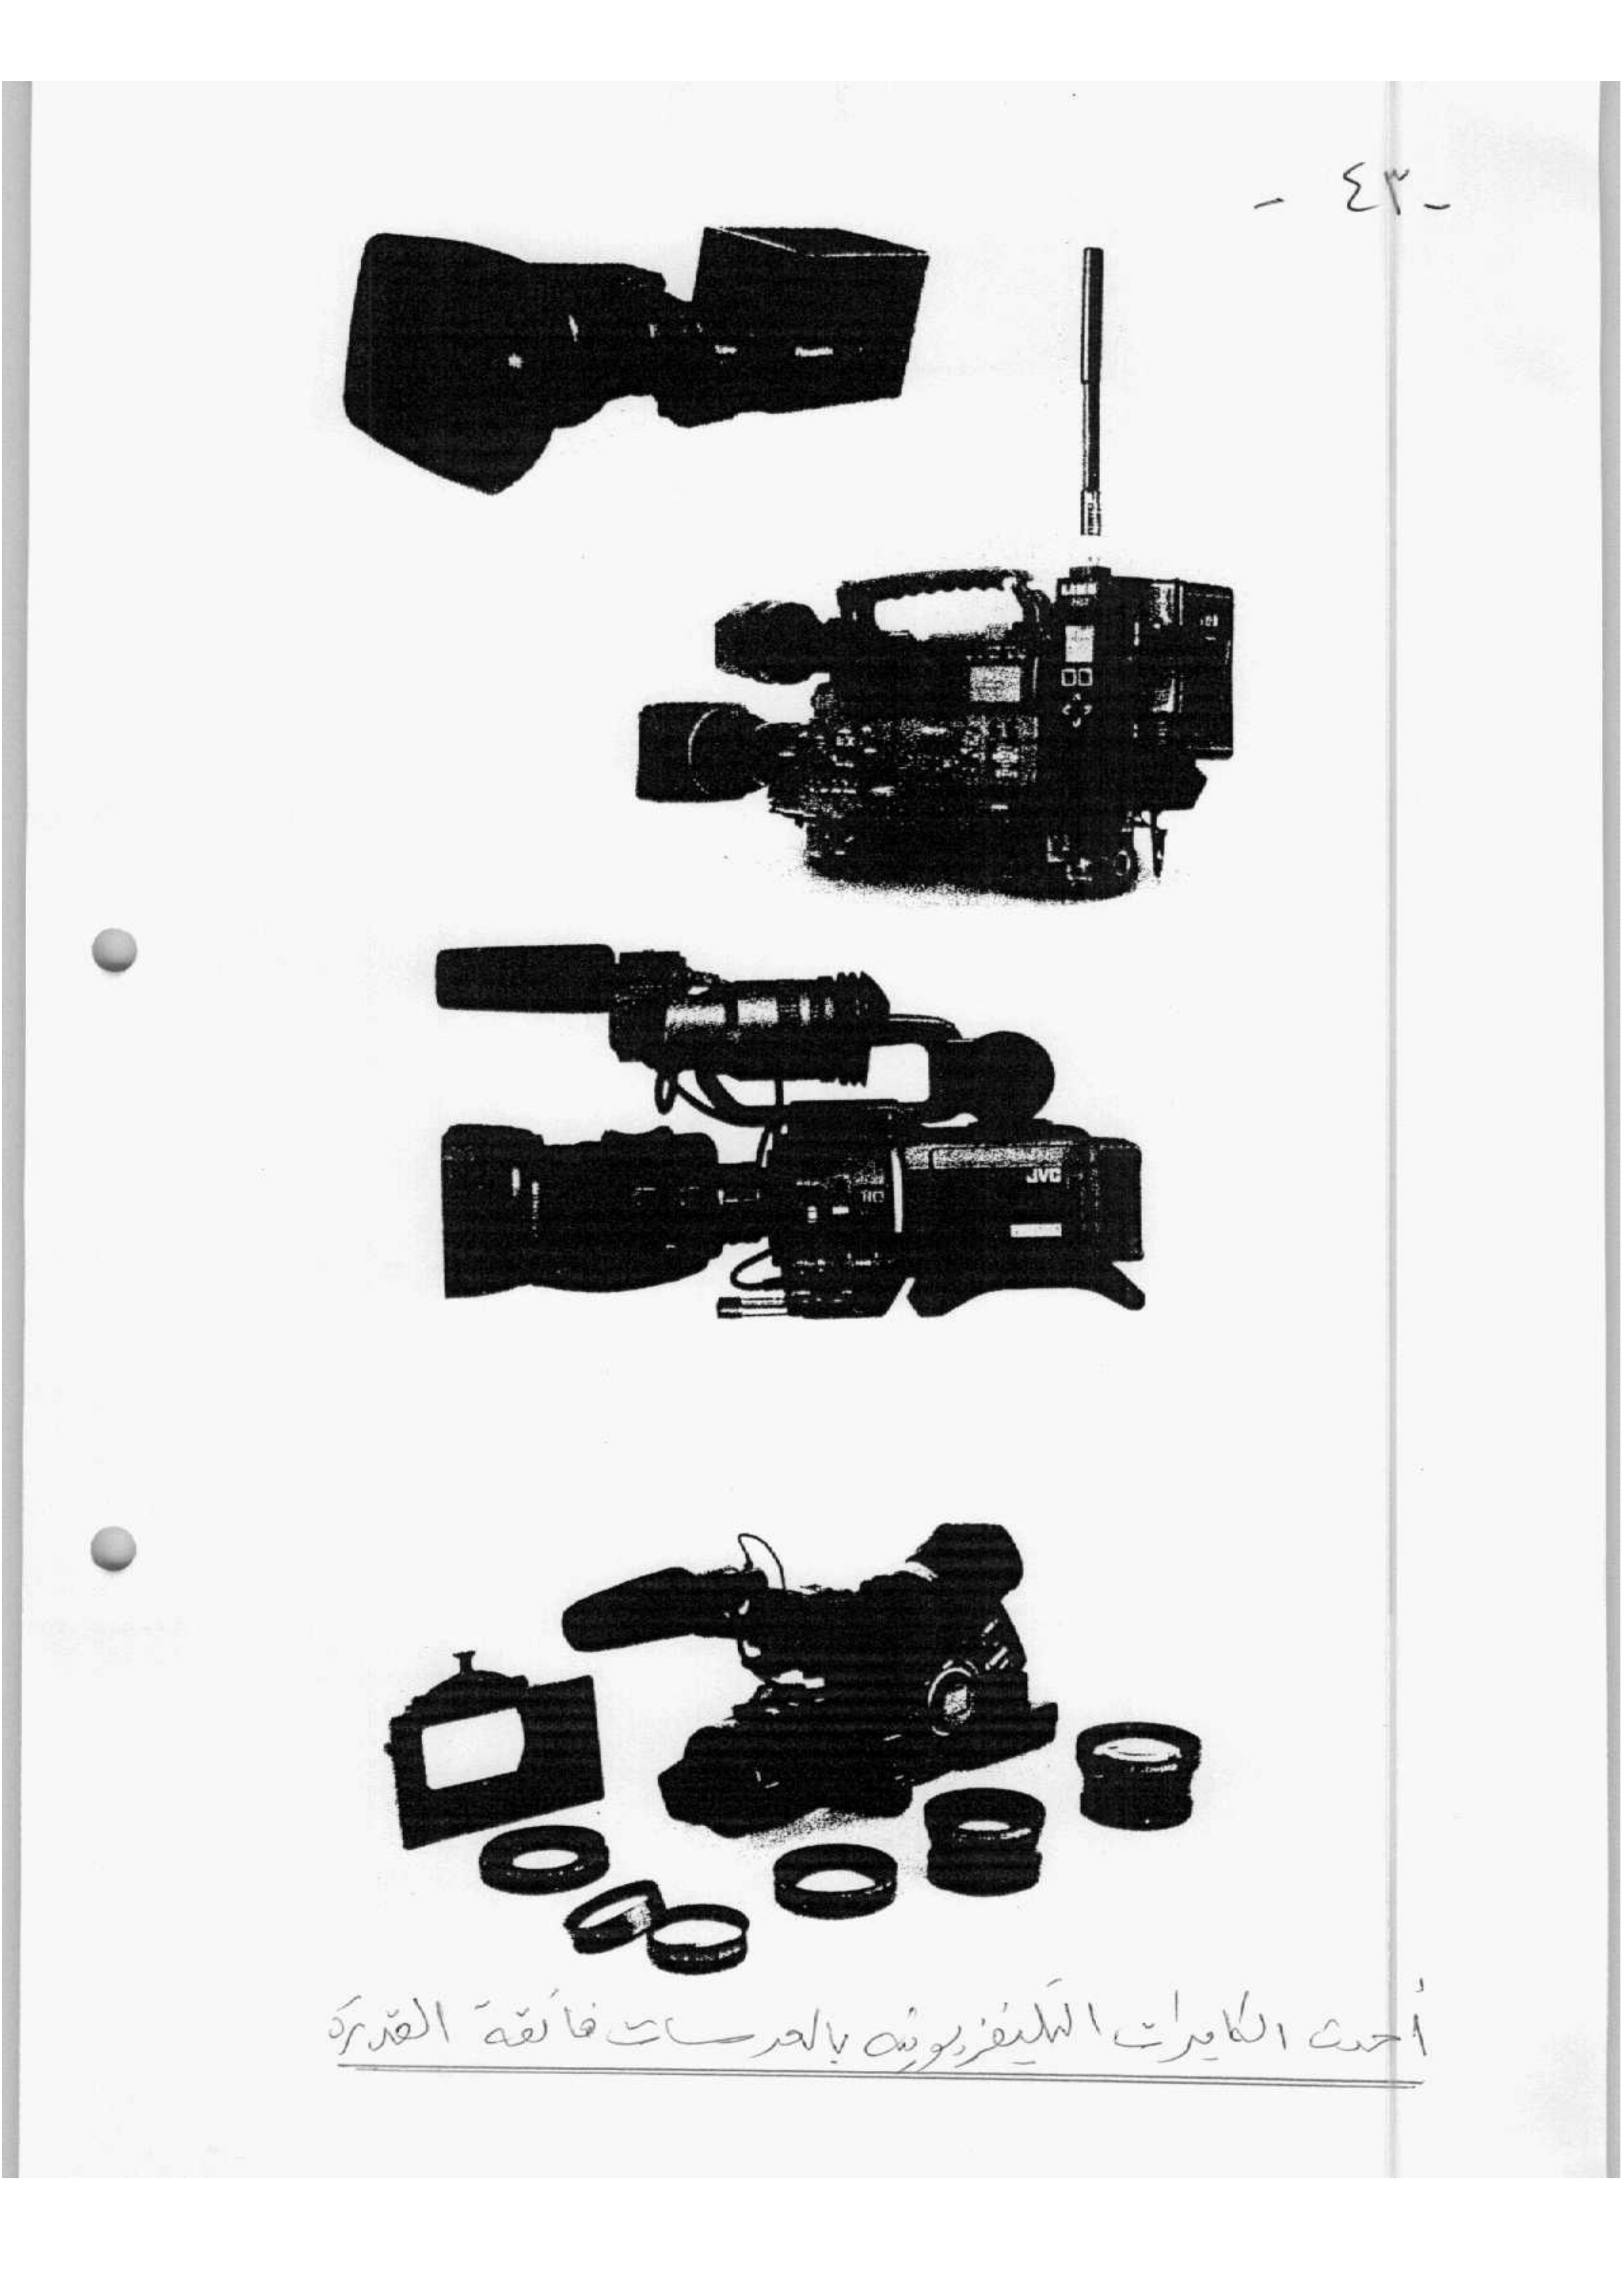 - ٤٣ -
JVC
أحدث الكاميرات التليفزيونية بالعدسات فائقة القدرة